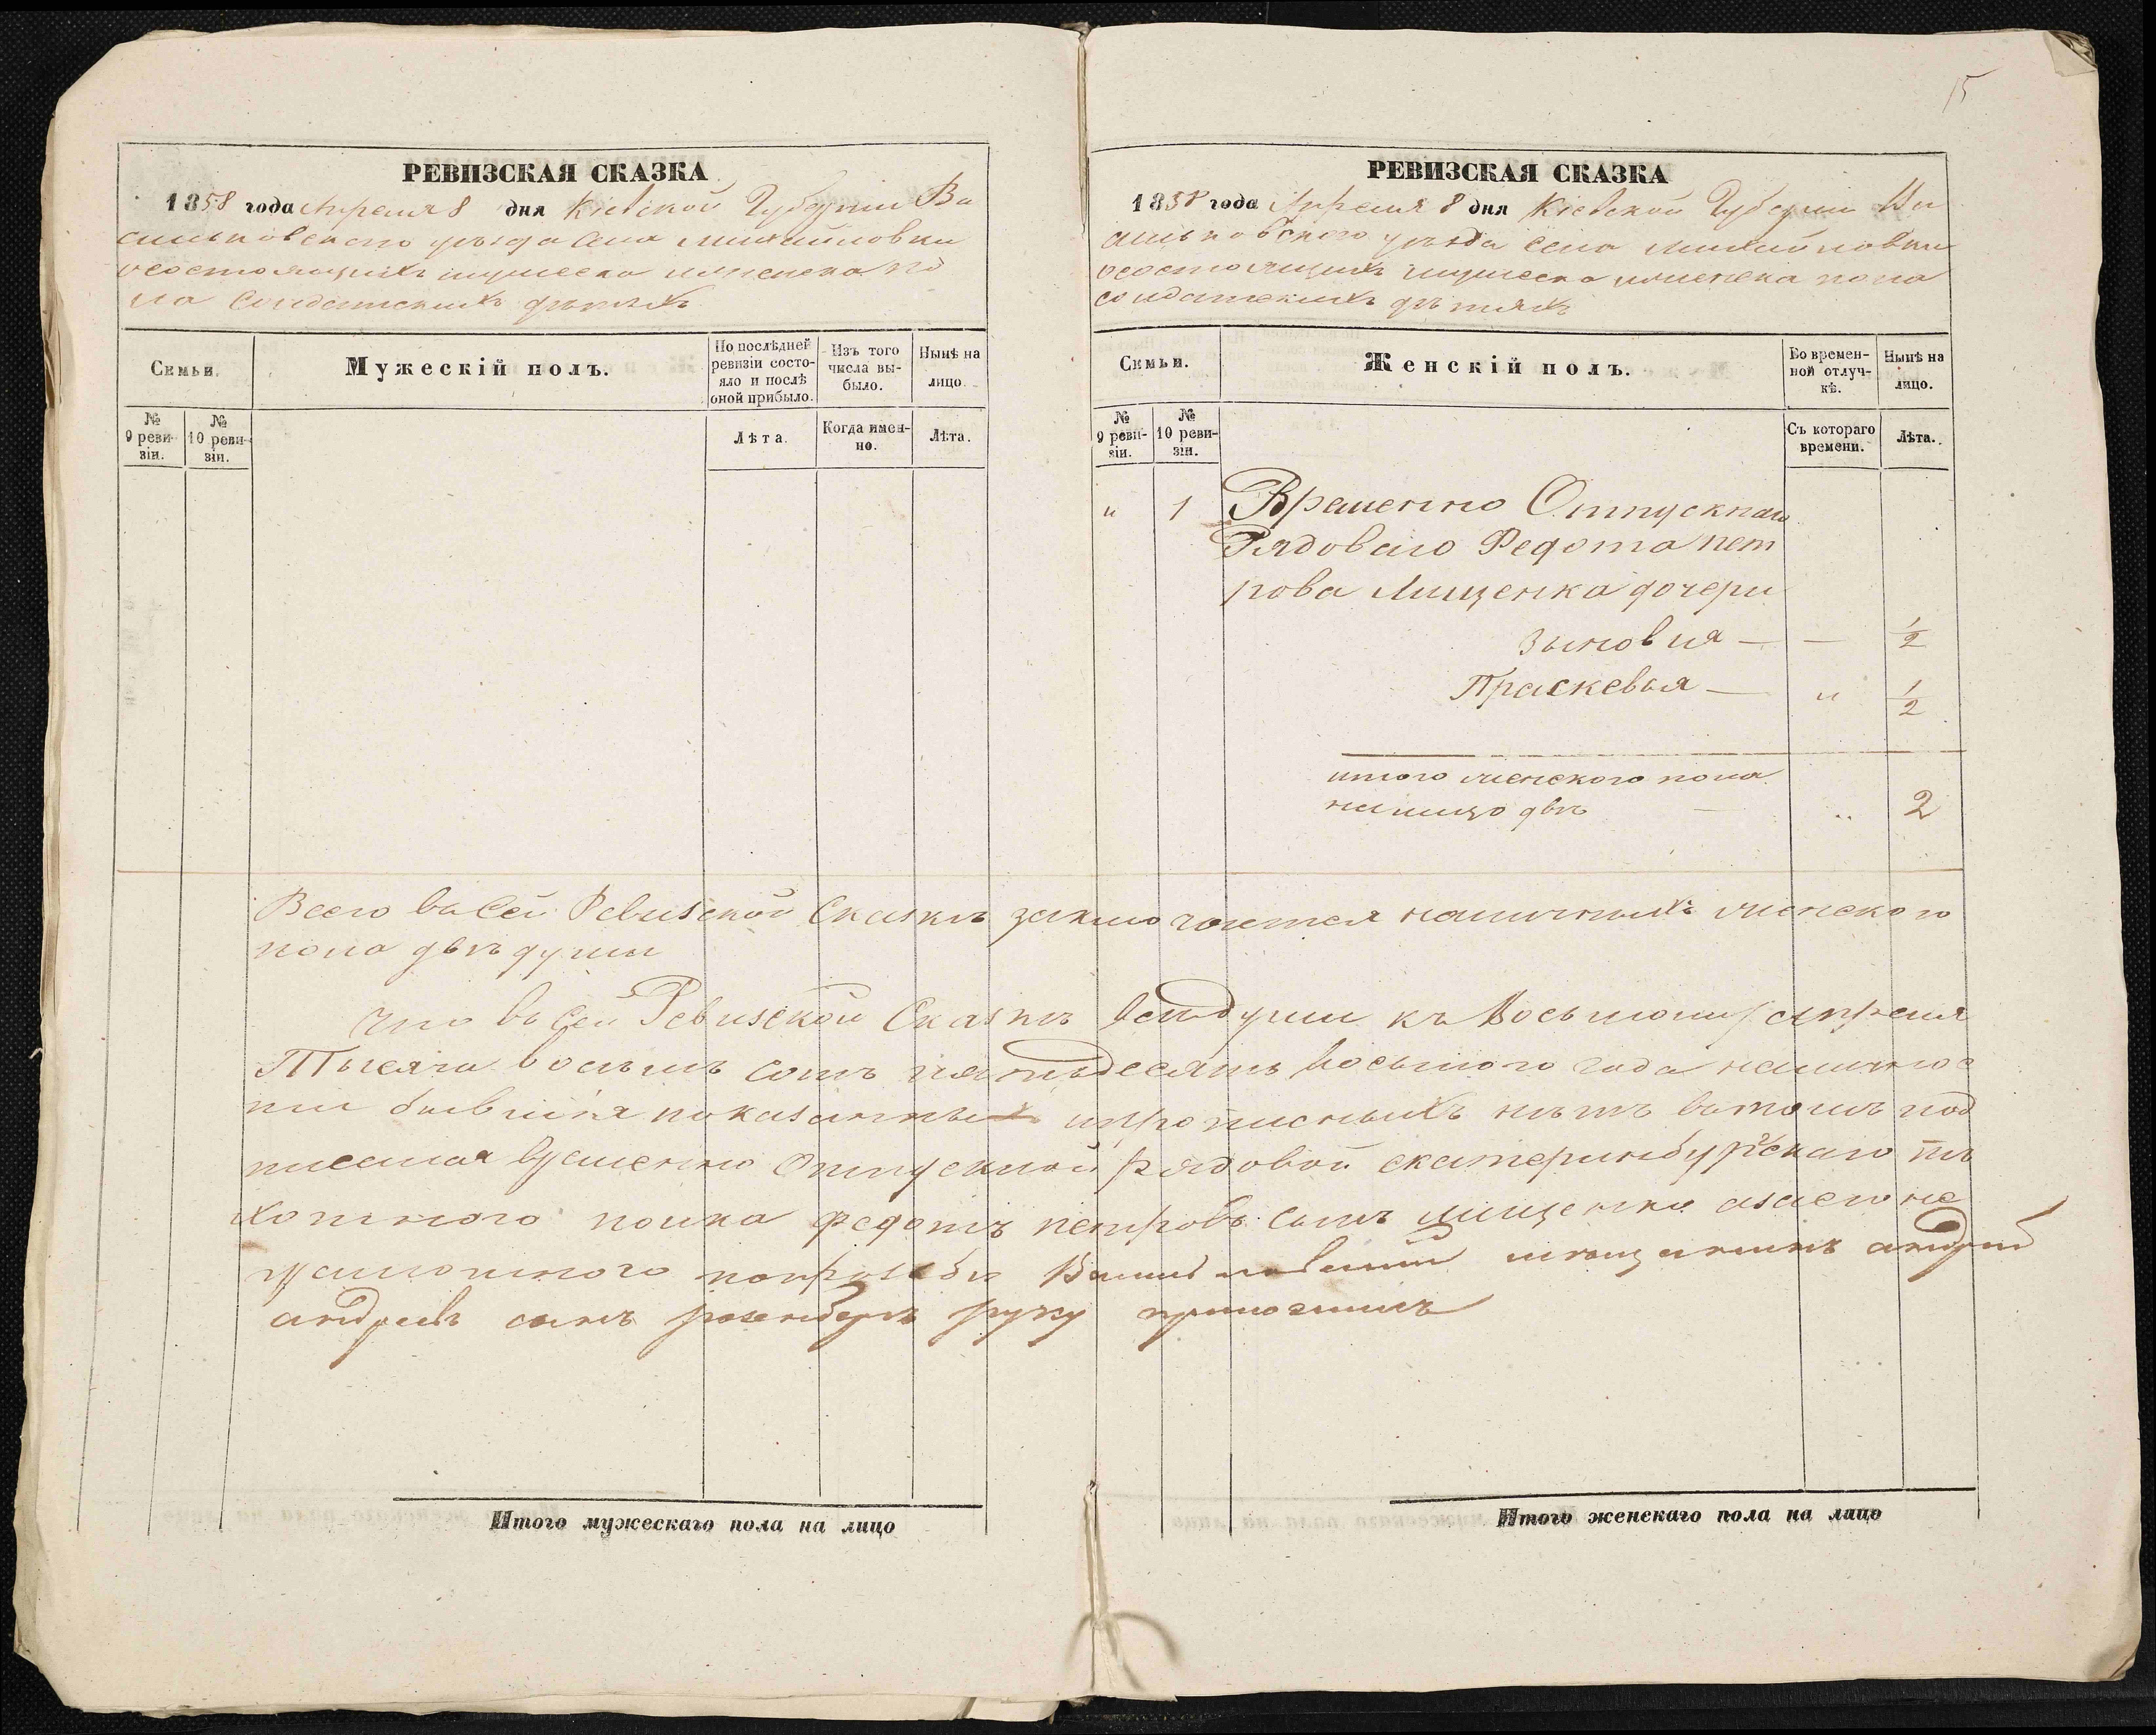 15
РЕВИЗСКАЯ СКАЗКА
1858 года Апреля 8 дня Кіевской Губерніи Ва
сильковскаго уѣзда Села Михайловки
осостоящихъ мужеска иженска по
ла Солдатскихъ дѣтяхъ
Семьи.
Мужескій полъ.
По послѣдней
ревизіи состо-
яло и послѣ
оной прибыло.
Изъ того
числа вы-
было.
Нынѣ на
лицо.
№
9 реви-
зіи.
№
10 реви-
зіи.
Лѣта.
Когда имен-
но.
Лѣта.
РЕВИЗСКАЯ СКАЗКА
1858 года Апреля 8 дня Кіевской Губерніи Ва
сильковского уѣзда села Михайловки
осостоящихъ мужеска иженска пола
солдатскихъ дѣтяхъ
Семьи.
Женскій полъ.
Во времен-
ной отлуч-
кѣ.
Нынѣ на
лицо.
№
9 реви-
зіи.
№
10 реви-
зіи.
Съ котораго
времени.
Лѣта.
" 1 Временно Отпускнаго
Рядоваго Федота пет
рова Лищенка дочери
Зиновия — — 1/2
Праскевья — " 1/2
итого женского пола
налицо двѣ — " 2
Всего всей Ревизской Сказкѣ заключается наличныхъ женского
пола двѣ души
Что всей Ревизской Сказкѣ вседуши къ Восьмому апреля
Тысяча восемь сотъ пятьдесятъ восьмого года наличнос
ти бывшія показанны ипрописныхъ нѣтъ втомъ под
писался временно Отпускной рядовой екатеринбургскаго пѣ
хотного полка федотъ петровъ сынъ лищенко азаего не
грамотного попрозбѣ мещанинъ андрей
андреевъ сынъ руку приложилъ
Итого мужескаго пола на лицо
Итого женскаго пола на лицо